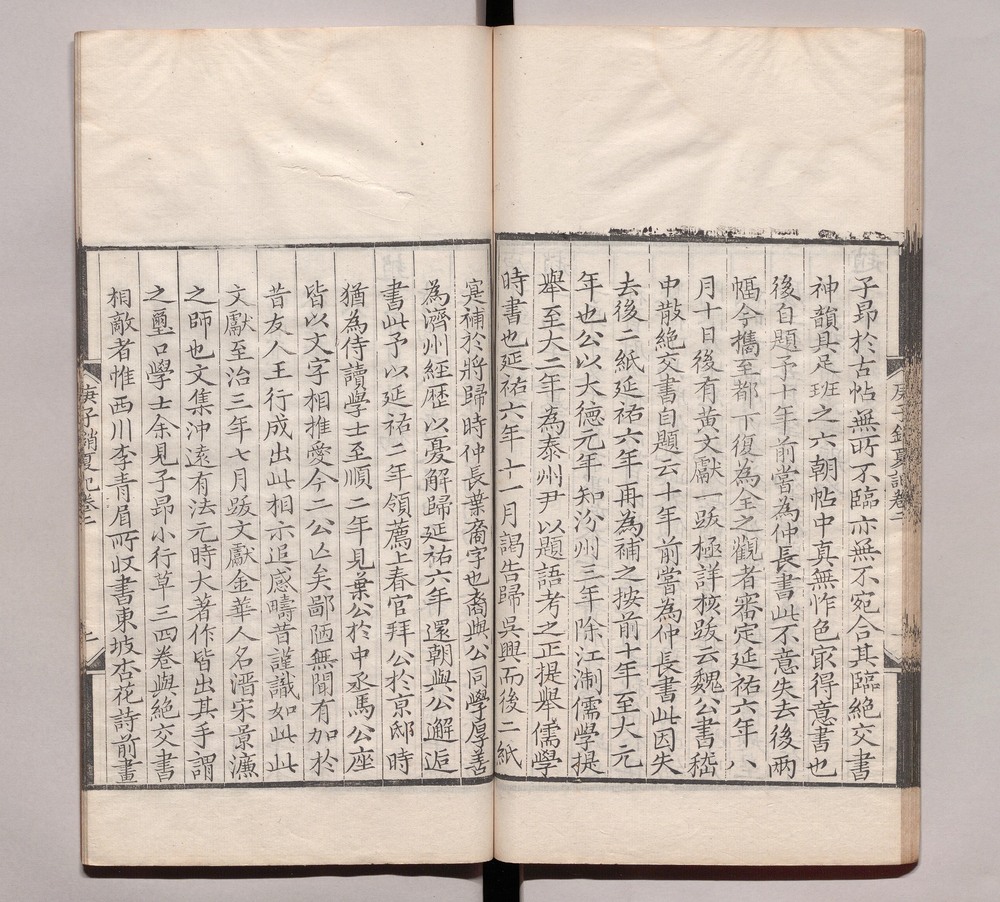 子昂於古帖無所不臨亦無不宛合其臨絕交書
神韻具足班之六朝帖中真無怍色㝡得意書也
後自題予十年前嘗為仲長書此不意失去後兩
幅今攜至都下復為全之觀者審定延祐六年八
月十日後有黃文獻一跋極詳核跋云魏公書嵇
中散絕交書自題云十年前嘗為仲長書此因失
去後二紙延祐六年再為補之按前十年至大元
年也公以大德元年知汾州三年除江淛儒學提
舉至大二年為泰州尹以題語考之正提舉儒學
時書也延祐六年十一月謁告歸吳興而後二紙
寔補於將歸時仲長葉裔字也裔與公同學厚善
為濟州經歷以憂解歸延祐六年還朝與公邂逅
書此予以延祐二年領薦上春官拜公於京邸時
猶為侍讀學士至順二年見葉公於中丞馬公座
皆以文字相推愛今二公亡矣鄙陋無聞有加於
昔友人王行成出此相示追感疇昔謹識如此此
文獻至治三年七月跋文獻金華人名溍宋景濂
之師也文集沖遠有法元時大著作皆出其手謂
之壐口學士余見子昂小行草三四卷與絕交書
相敵者惟西川李青眉所收書東坡杏花詩前畫
庚子銷夏記卷二